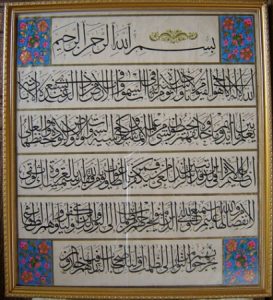 بسم الله الرحمن الرحيم
الله لا إله إلا هو الحي القيوم لا تأخذه سنة ولا نوم له ما في السموات وما في الأرض من ذا الذي يشفع عنده إلا بإذنه
يعلم ما بين أيديهم وما خلفهم ولا يحيطون بشيء من علمه إلا بما شاء وسع كرسيه السموات والأرض ولا يؤده حفظهما وهو العلي
العظيم لا إكراه في الدين قد تبين الرشد من الغي فمن يكفر بالطاغوت ويؤمن بالله فقد استمسك بالعروة الوثقى
لا انفصام لها والله سميع عليم الله ولي الذين آمنوا يخرجهم من الظلمات إلى النور والذين كفروا أولياؤهم الطاغوت
يخرجونهم من النور إلى الظلمات أولئك أصحاب النار هم فيها خالدون